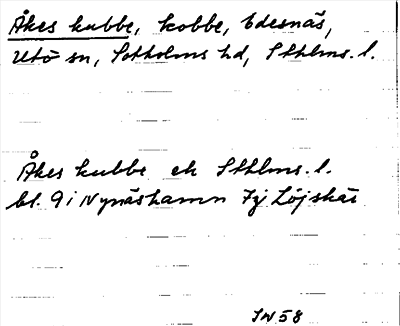 Åkes kubbe, kobbe, Edesnäs,
Utö sn, Sotholms hd, Sthlms. l.
Åkes kubbe ek Sthlms. l.
bl. 9 i Nynäshamn Fj Löjskär
IW 58